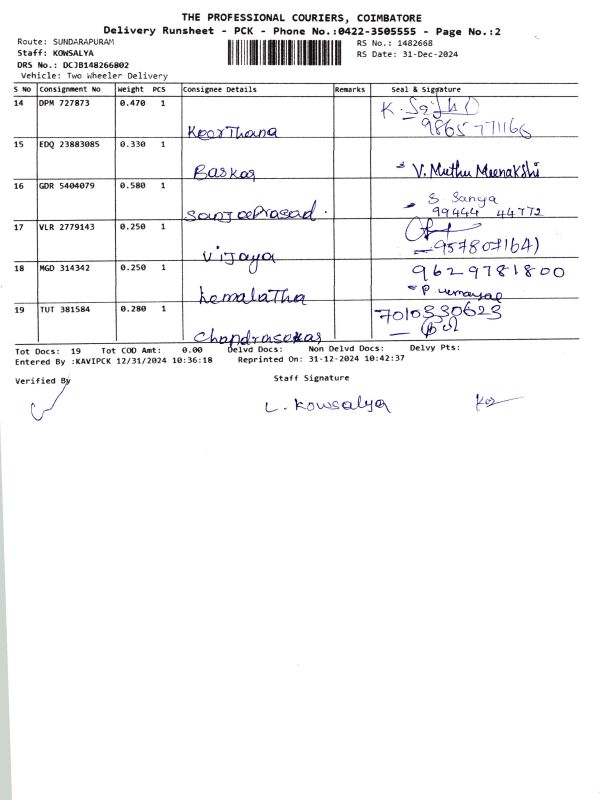 THE PROFESSIONAL COURIERS, COIMBATORE
Delivery Runsheet - PCK - Phone No.:0422-3505555 - Page No.:2
Route: SUNDARAPURAM RS No.: 1482668
Staff: KOWSALYA RS Date: 31-Dec-2024
DRS No.: DCJB148266802
Vehicle: Two Wheeler Delivery
S No Consignment No Weight PCS Consignee Details Remarks Seal & Signature
14 DPM 727873 0.470 1 K.
9865771166
Keerthana
15 EDQ 23883085 0.330 1
Baskar V. Muthu Meenakshi
16 GDR 5404079 0.580 1 S Sanya
SanjeePrasad. 99444 44772
17 VLR 2779143 0.250 1
9578071641
Vijaya
18 MGD 314342 0.250 1 9629781800
hemalatha P
19 TUT 381584 0.280 1 7010330623
Chandrasekar
Tot Docs: 19 Tot COD Amt: 0.00 Delvd Docs: Non Delvd Docs: Delvy Pts:
Entered By :KAVIPCK 12/31/2024 10:36:18 Reprinted On: 31-12-2024 10:42:37
Verified By Staff Signature
L. Kowsalya